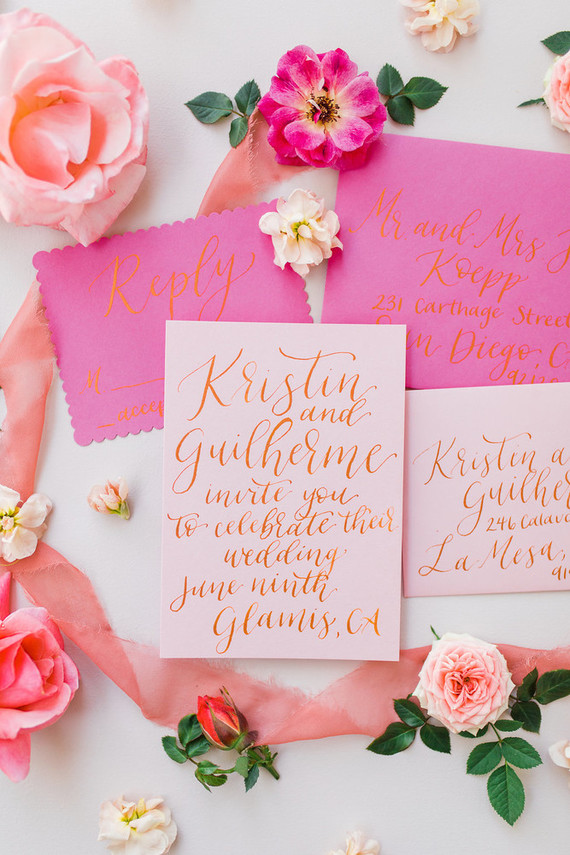 Reply
M
Mr and Mrs
Koepp
231 Carthage Street
San Diego, C
Kristin
and
Guilherme
invite you
to celebrate their
wedding
June ninth
Glamis, CA
Kristin a
Guilher
246 Calav
La Mesa,